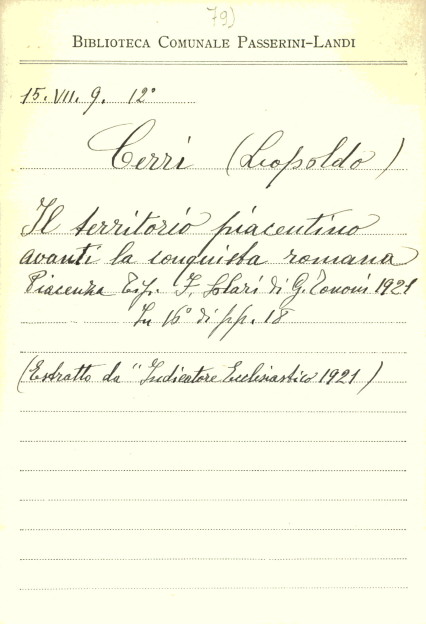 79)
BIBLIOTECA COMUNALE PASSERINI-LANDI
15. VII. 9. 12°
Cerri (Leopoldo)
Il territorio piacentino
avanti la conquista romana
Piacenza Tip. F. Solari di G. Tononi 1921
In 16° di pp. 18
(Estratto da "Indicatore Ecclesiastico 1921)